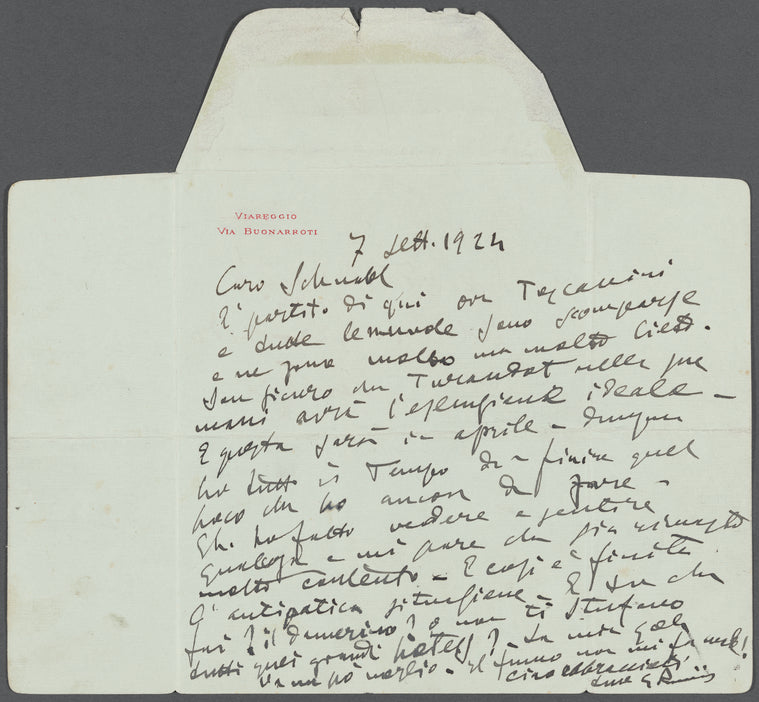 VIAREGGIO
VIA BUONARROTI
7 Sett. 1924
Caro Schnabl
È partito di qui ora Toscanini
e tutte le nuvole sono scomparse
e ne sono molto ma molto lieto.
Son sicuro che Turandot nelle sue
mani avrà l'esecuzione ideale -
E questa sarà in aprile - dunque
ho tutto il Tempo di finire quel
poco che ho ancora da fare -
Gli ho fatto vedere e sentire
qualcosa e mi pare che sia rimasto
molto contento - E così è finita
l'antipatica situazione - E tu che
fai? il damerino? o non ti stufano
tutti quei grandi hotels? La mia gola
va un po' meglio - il fumo non mi fa male!
ciao abbracciati